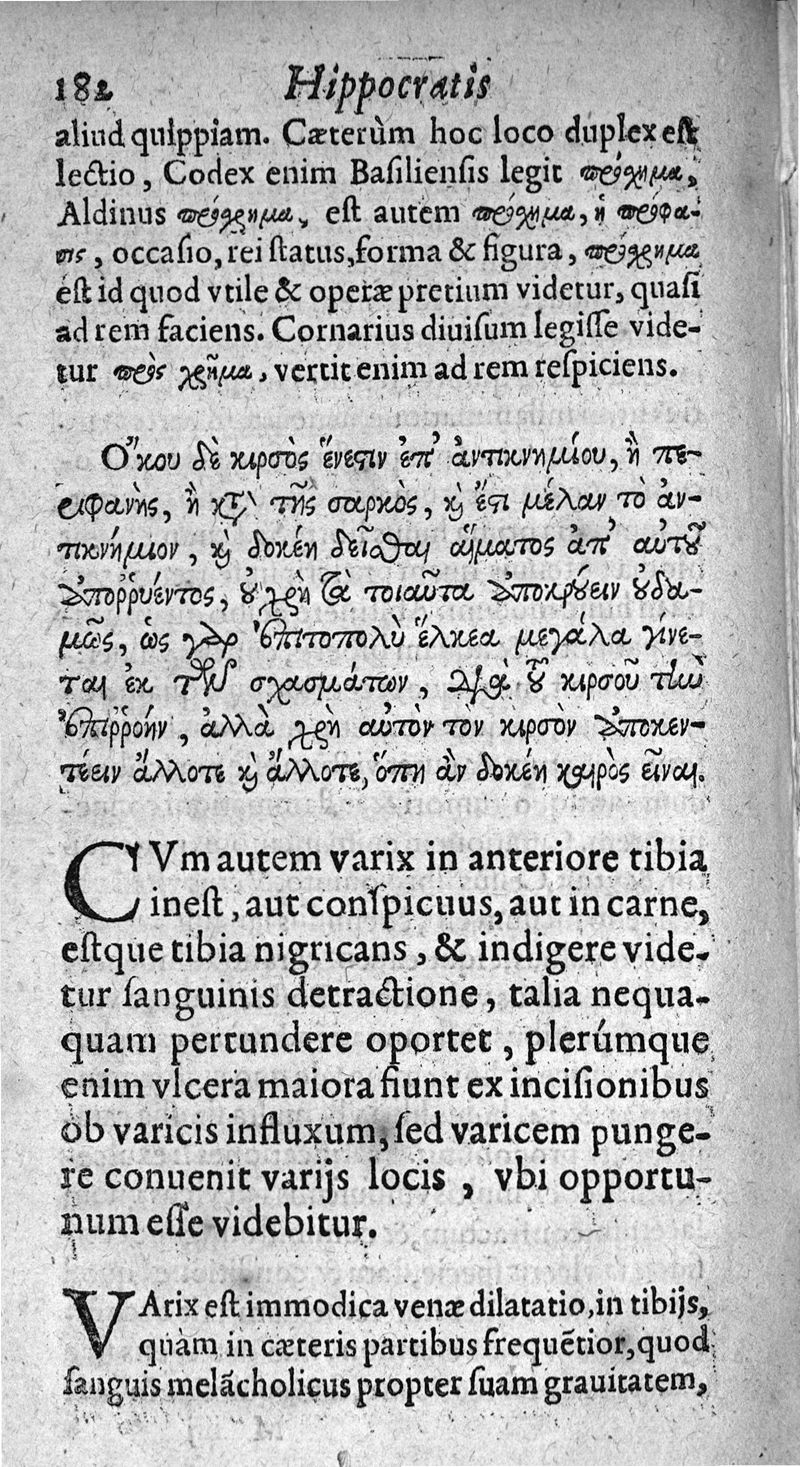 182 Hippocratis
aliud quippiam. Cæterùm hoc loco duplex est
lectio, Codex enim Basiliensis legit πρόσχημα,
Aldinus πρόσχρημα, est autem πρόσχημα, ἡ πρόφα-
σις, occasio, rei status, forma & figura, πρόσχρημα
est id quod vtile & operæ pretium videtur, quasi
ad rem faciens. Cornarius diuisum legisse vide-
tur πρὸς χρῆμα, vertit enim ad rem respiciens.
Ὅκου δὲ κιρσὸς ἔνεστιν ἐπ' ἀντικνημίου, ἢ πε-
ριφανὴς, ἢ κατὰ τῆς σαρκὸς, καὶ ἔστι μέλαν τὸ ἀν-
τικνήμιον, καὶ δοκέη δεῖσθαι αἵματος ἀπ' αὐτοῦ
ἀποῤῥυέντος, οὐ χρὴ τὰ τοιαῦτα ἀποκρούειν οὐδα-
μῶς, ὡς γὰρ ἐπιτοπολὺ ἕλκεα μεγάλα γίνε-
ται ἐκ τῶν σχασμάτων, διὰ τοῦ κιρσοῦ τὴν
ἐπιῤῥοήν, ἀλλὰ χρὴ αὐτὸν τον κιρσὸν ἀποκεν-
τέειν ἄλλοτε καὶ ἄλλοτε, ὅπη ἂν δοκέη καιρὸς εἶναι.
CVm autem varix in anteriore tibia
inest, aut conspicuus, aut in carne,
estque tibia nigricans, & indigere vide-
tur sanguinis detractione, talia nequa-
quam pertundere oportet, plerúmque
enim vlcera maiora fiunt ex incisionibus
ob varicis influxum, sed varicem punge-
re conuenit varijs locis, vbi opportu-
num esse videbitur.
VArix est immodica venæ dilatatio, in tibijs,
quàm in cæteris partibus frequẽtior, quod
sanguis melãcholicus propter suam grauitatem,